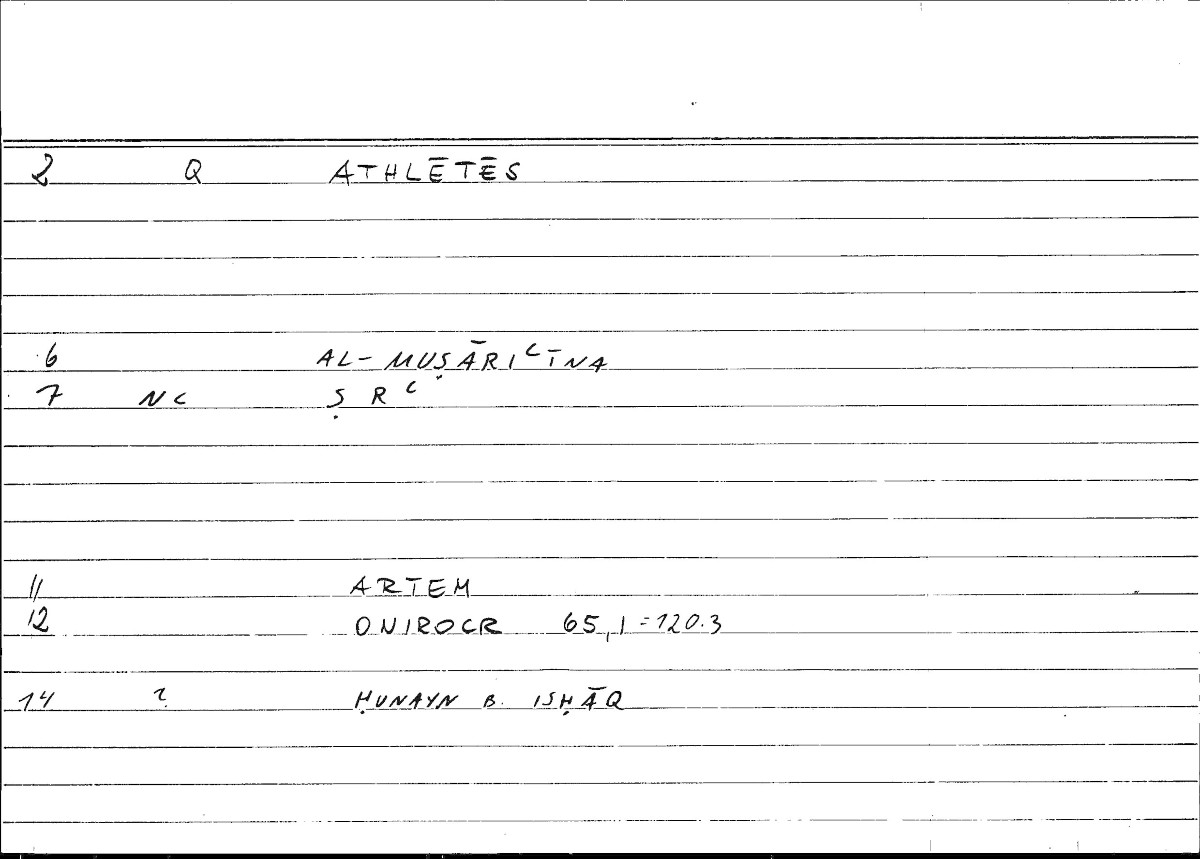 2 Q ATHLĒTĒS
6 AL-MUṢĀRIʿĪNA
7 NC ṢRʿ
11 ARTEM
12 ONIROCR 65,1=120.3
14 ? ḤUNAYN B. ISḤĀQ